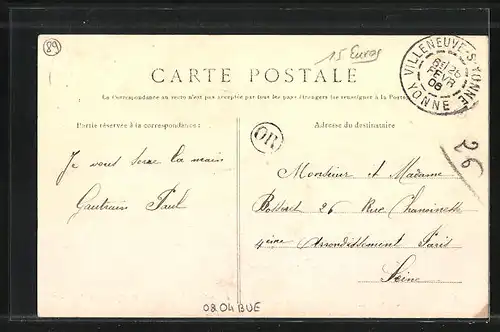 89
15 Euros
CARTE POSTALE
La Correspondance au recto n'est pas acceptée par tous les pays étrangers (se renseigner à la Poste)
VILLENEUVE-S-YONNE
6E/26
FEVR
06
YONNE
Partie réservée à la correspondance:
OR
Adresse du destinataire
26
Je vous serre la main
Gautrain Paul
Monsieur et Madame
26 Rue Chanoinesse
4eme Arrondissement Paris
Seine
08.04 BUE